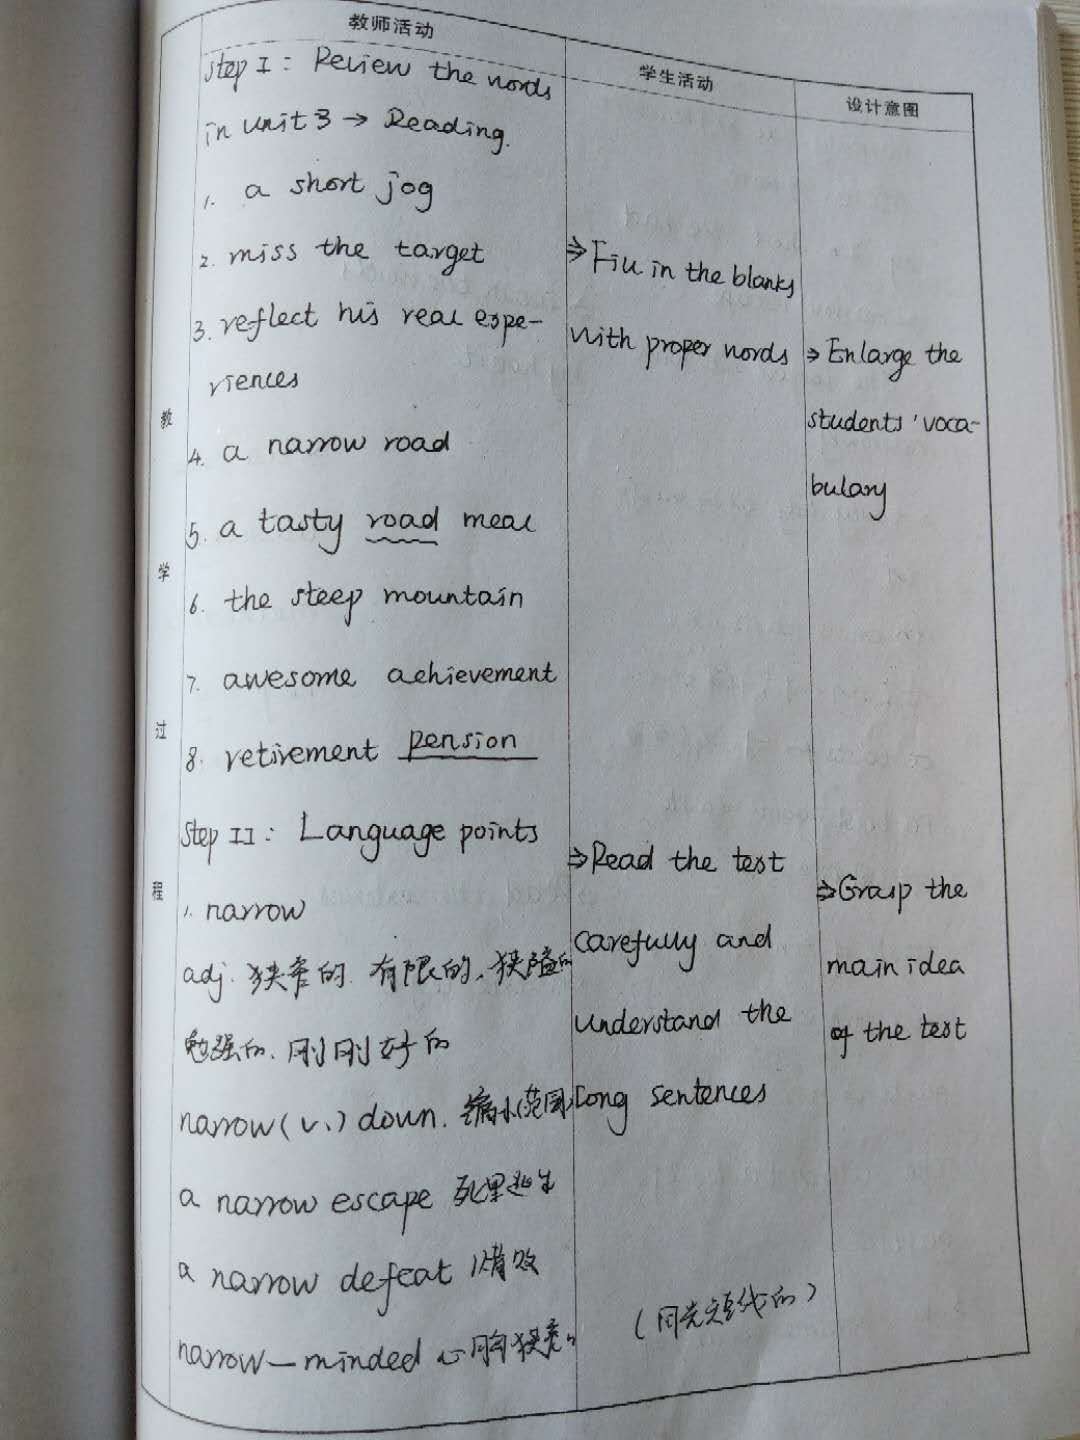 教师活动
学生活动
设计意图
教
学
过
程
Step I: Review the words
in unit 3 → Reading.
1. a short jog
2. miss the target
3. reflect his real expe-
riences
4. a narrow road
5. a tasty road meal
6. the steep mountain
7. awesome achievement
8. retirement pension
Step II: Language points
1. narrow
adj. 狭窄的. 有限的、狭隘的
勉强的、刚刚好的
narrow (v.) down. 缩小(范围)
a narrow escape 死里逃生
a narrow defeat 惜败
narrow-minded 心胸狭窄的
⇒ Fill in the blanks
with proper words
⇒ Read the text
carefully and
understand the
long sentences
(目光短线的)
⇒ Enlarge the
students' voca-
bulary
⇒ Grasp the
main idea
of the text